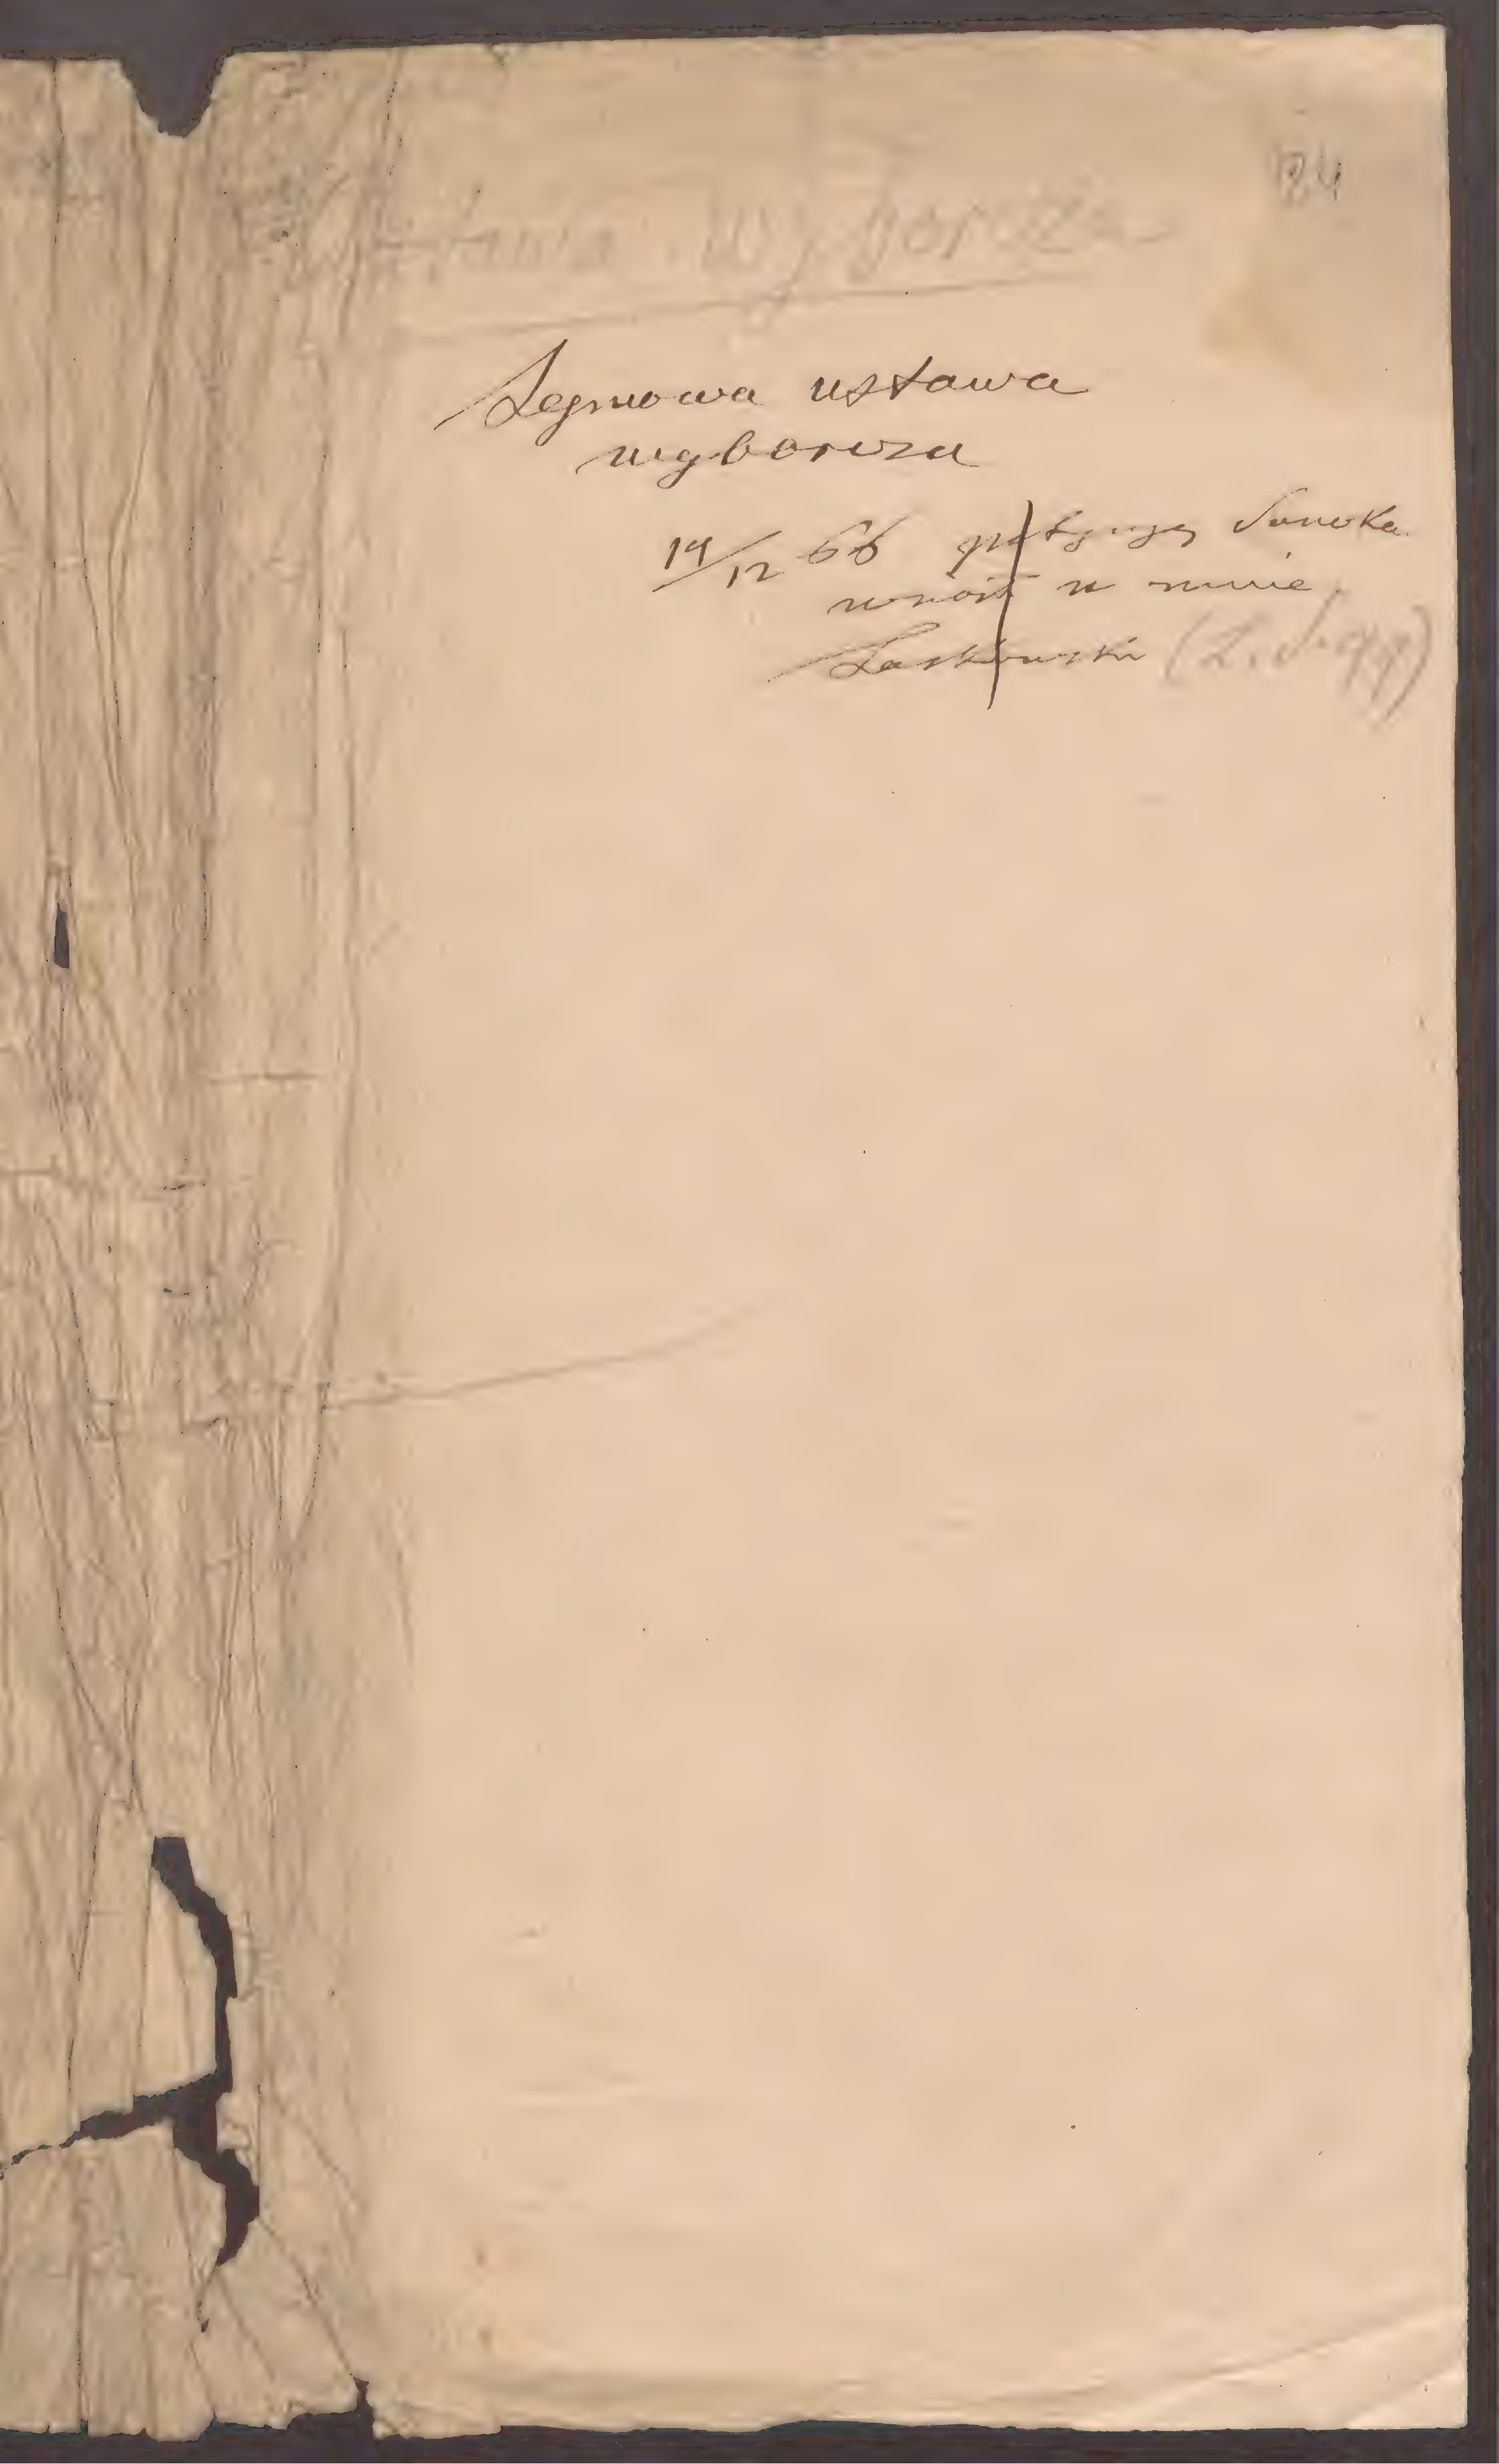 84
Ustawa Wyborcza
Sejmowa ustawa
wyborcza
14/12 66 petycyę Sanoka
wniósł u mnie
Laskowski (L. S. 99)